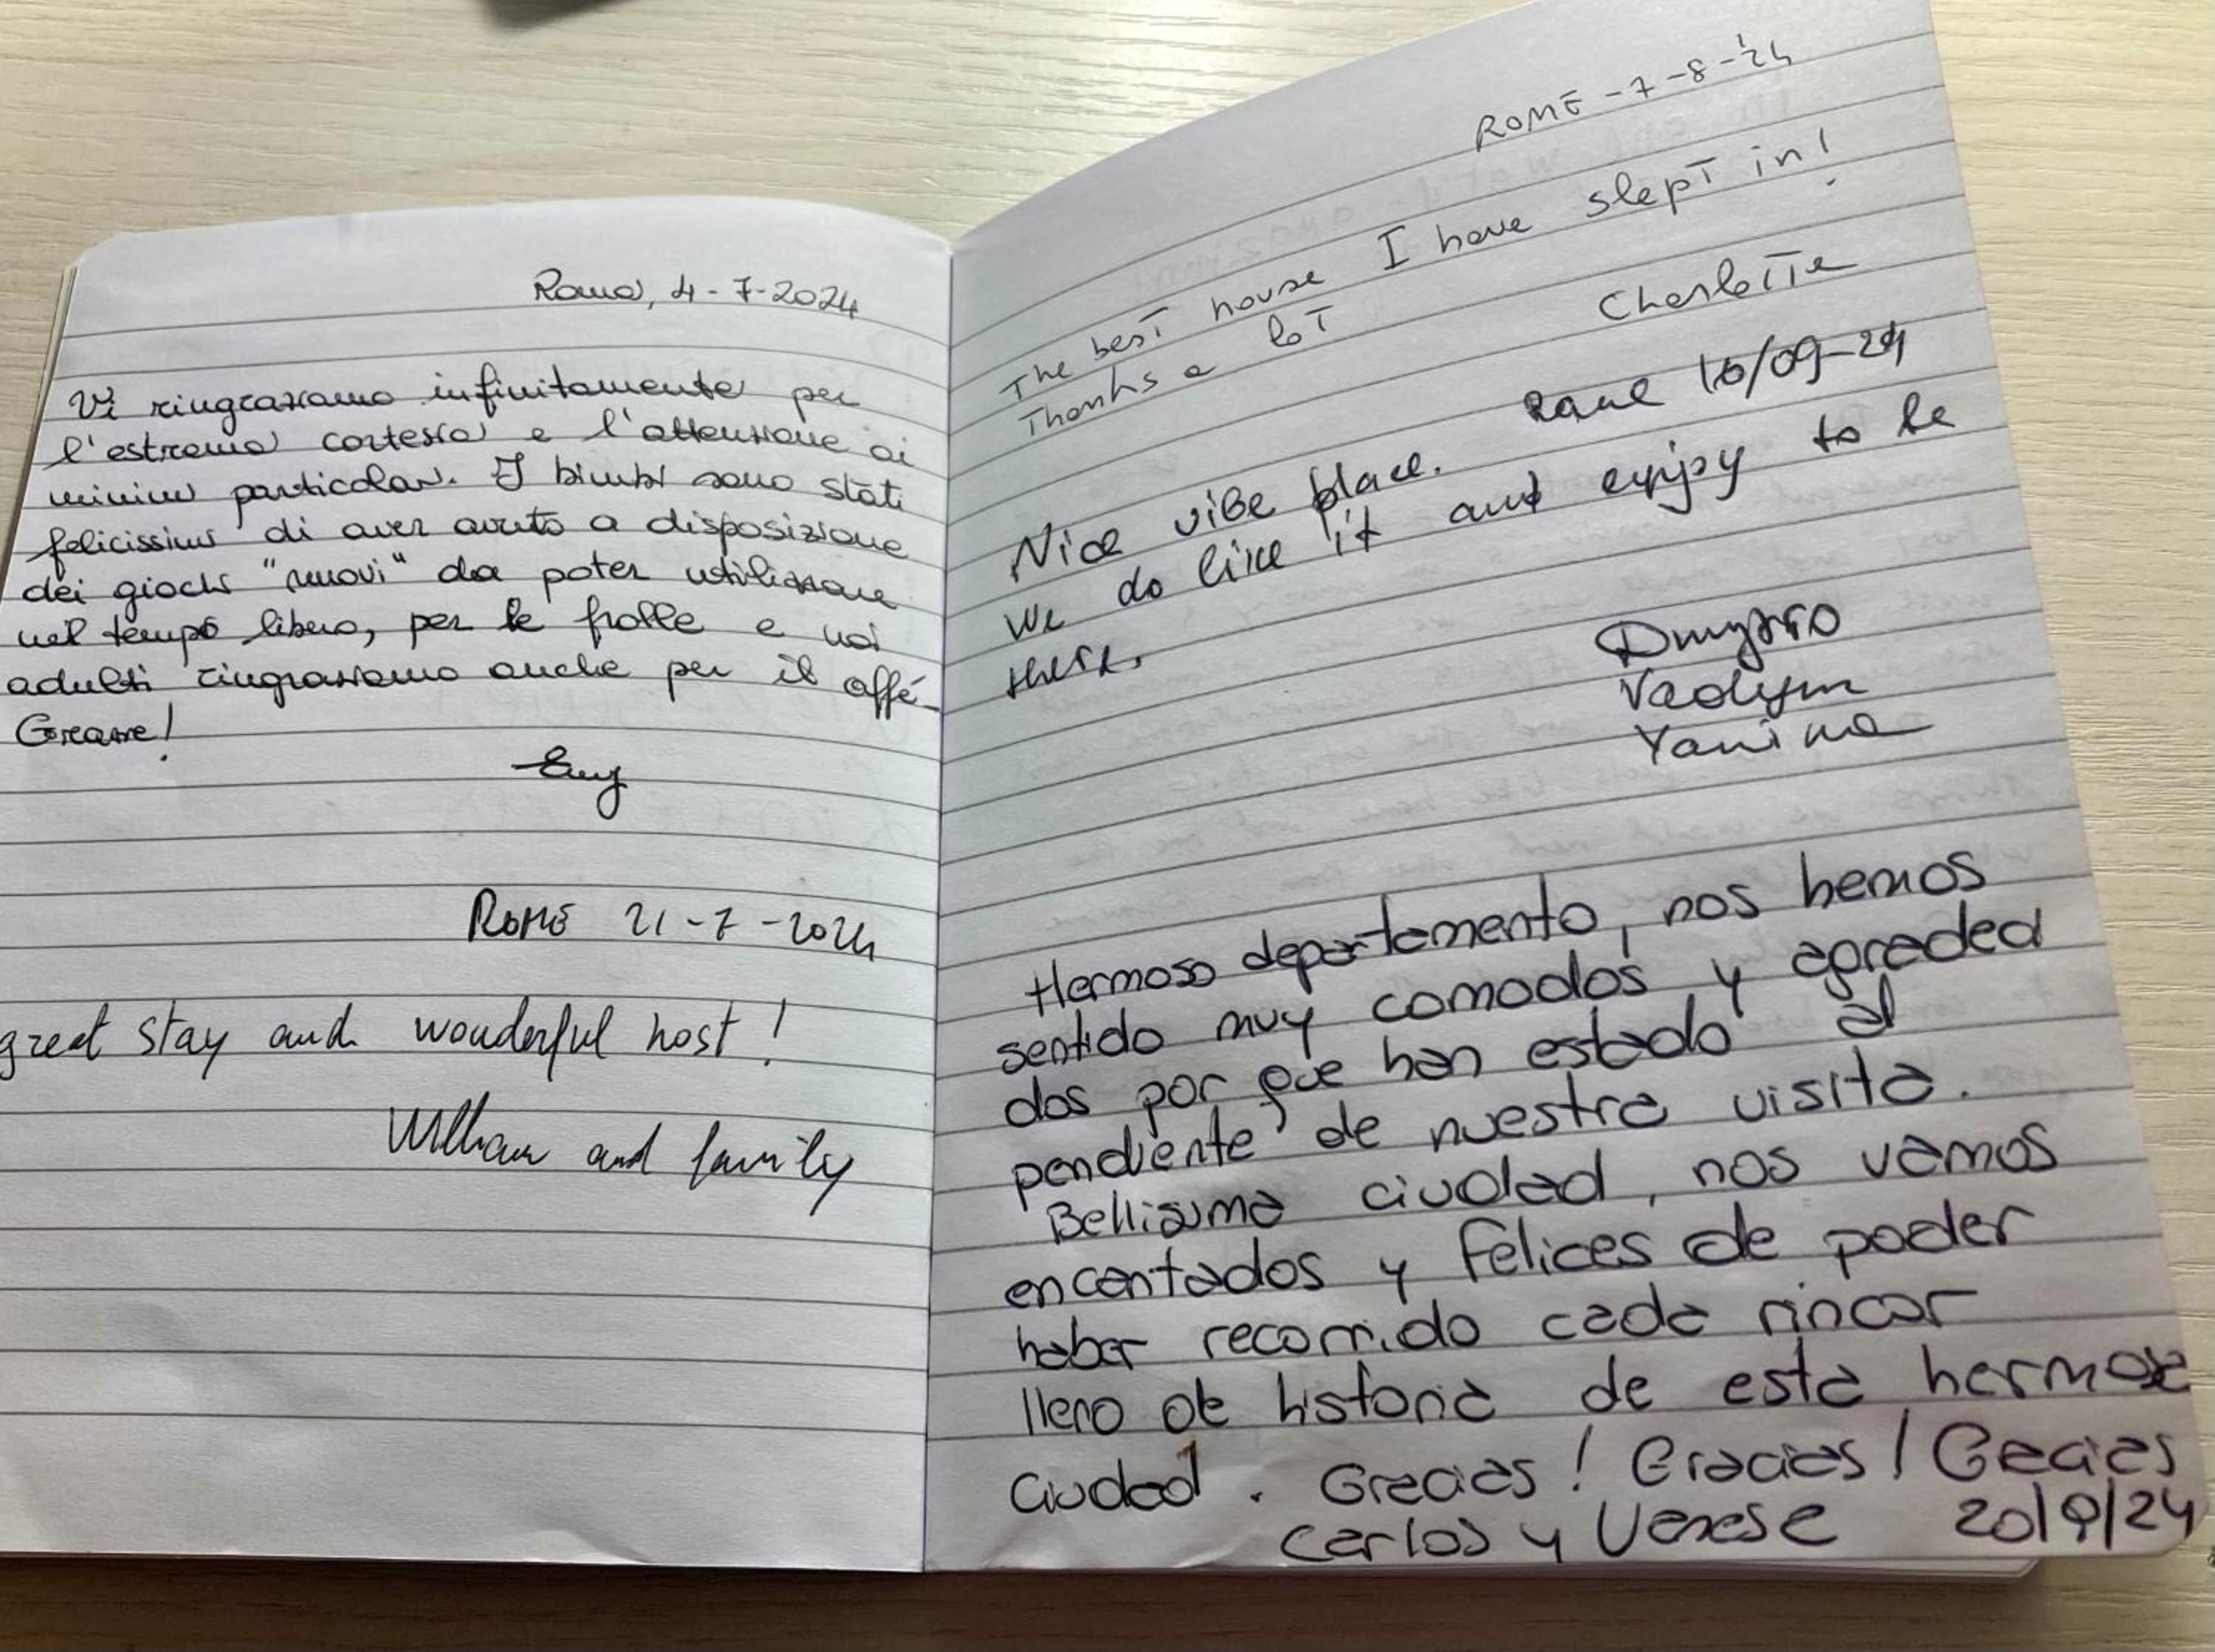 Roma, 4-7-2024
Vi ringraziamo infinitamente per
l'estrema cortesia e l'attenzione ai
minimi particolari. I bimbi sono stati
felicissimi di aver avuto a disposizione
dei giochi "nuovi" da poter utilizzare
nel tempo libero, per le frolle e noi
adulti ringraziamo anche per il caffé.
Grazie!
ROME 21-7-2024
great stay and wonderful host!
William and family
ROME -7-8-'24
The best house I have slept in!
Thanks a lot
Charlotte
Rome 16/09-24
Nice vibe place.
We do like it and enjoy to be
there.
Dmytro
Vadym
Yanina
Hermoso departamento, nos hemos
sentido muy comodos y agradeci
dos por que han estado al
pendiente de nuestra visita.
Bellisima ciudad, nos vamos
encantados y felices de poder
haber recorrido cada rincor
lleno de historia de esta hermosa
ciudad. Gracias! Gracias! Gracias
Carlos y 20/9/24